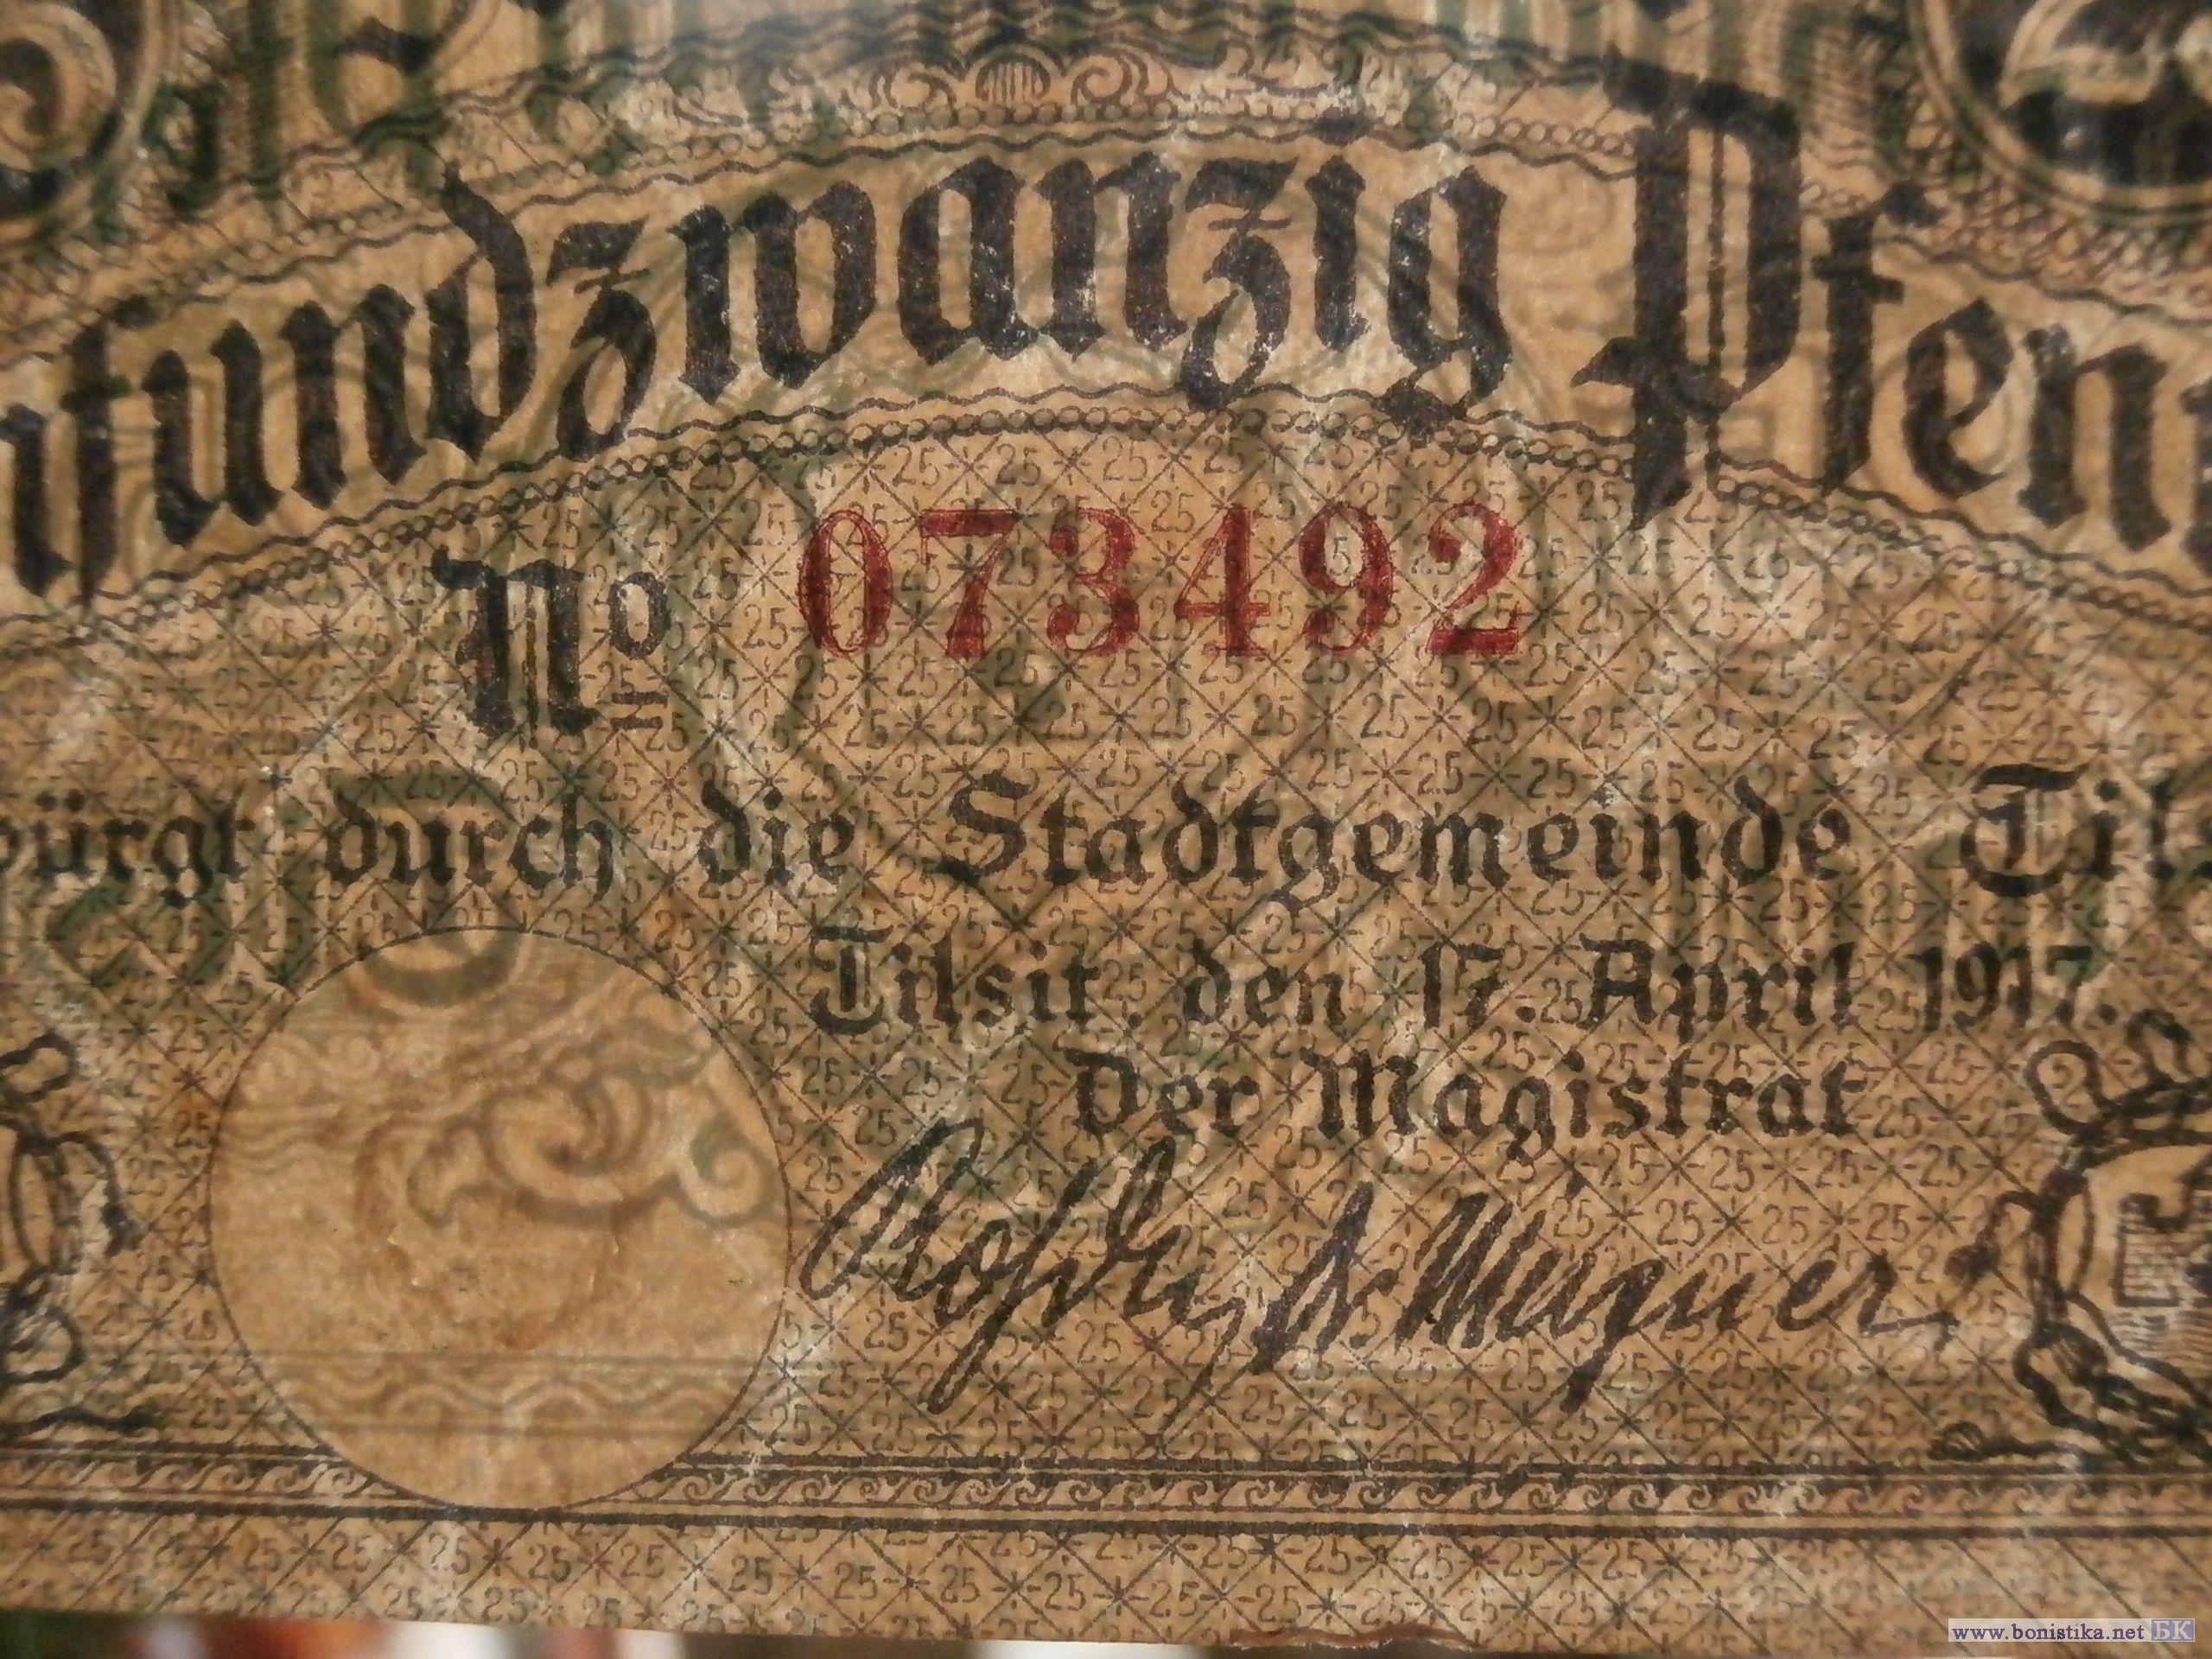 nfundzwanzig Pfenn
No 073492
bürgt durch die Stadtgemeinde Tils
Tilsit, den 17. April 1917.
Der Magistrat
www.bonistika.net БК